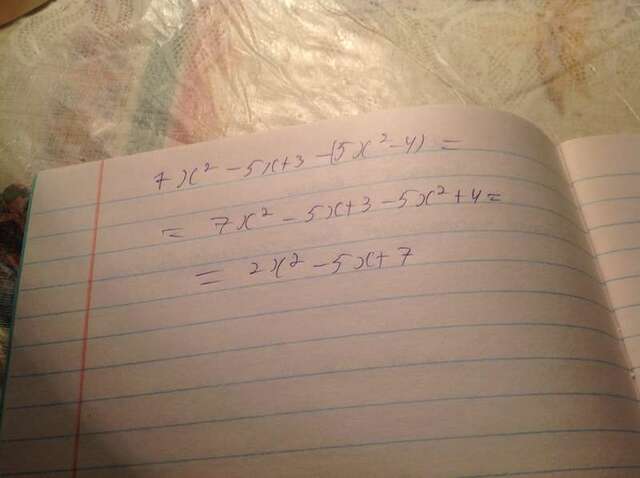 7x² - 5x + 3 - (5x² - 4) =
= 7x² - 5x + 3 - 5x² + 4 =
= 2x² - 5x + 7